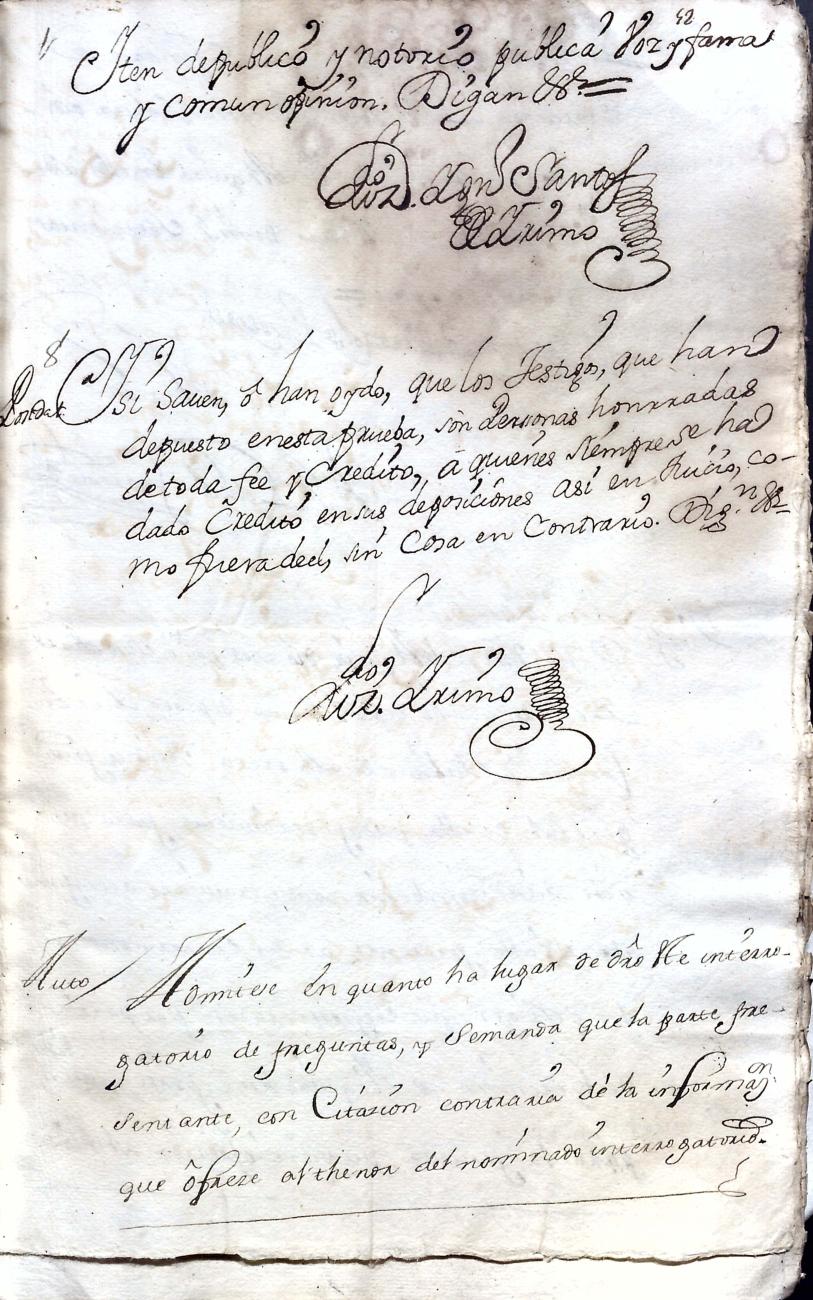 42
Iten de publico y notorio publica voz y fama
y comun opinion. Digan &ª
Ldo Dn Santos
Primo
8
Posdat
Si Saven, ô han oydo, que los Testigos, que han
depuesto en esta prueba, son Personas honrradas
de toda fee y Credito, â quienes siempre se ha
dado Credito en sus deposiciones asi en Juicio, co-
mo fuera del, sin Cosa en Contrario. Dig.n &ª
Primo
Auto / Admitese En quanto ha lugar de dro Ste interro-
gatorio de preguntas, y Semanda que la parte pre-
sentante, con Citazion contraria dé la informaon
que ôfreze al thenor del nominado interrogatorio.